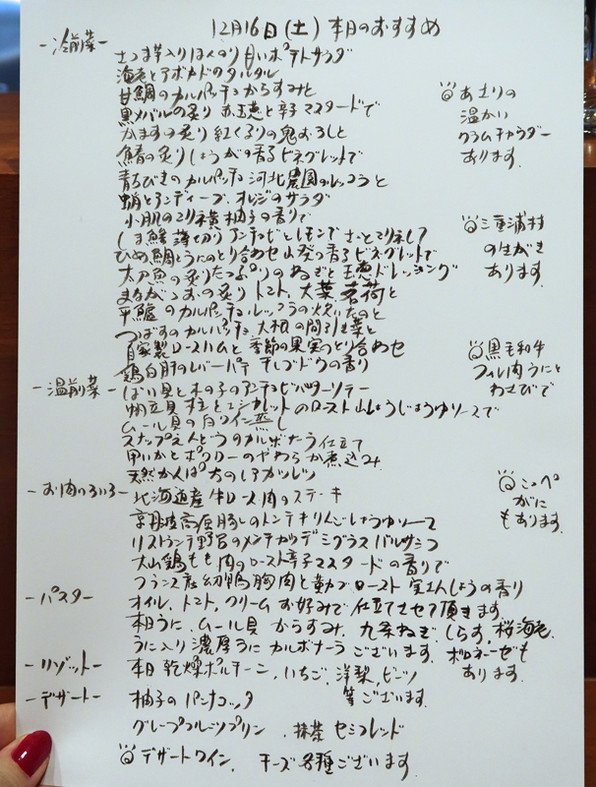 12月16日(土) 本日のおすすめ
-冷前菜-
さつま芋入りほんのり甘いポテトサラダ
海老とアボカドのタルタル
甘鯛のカルパッチョからすみと
黒メバルの炙り 赤玉葱と辛子マスタードで
かますの炙り 紅くるりの鬼おろしと
鯖の炙り しょうがの香るビネグレットで
青ちびきのカルパッチョ 河北農園のルッコラと
蛸とアンディーブ、オレンジのサラダ
小肌のマリネ 柚子の香りで
しま鯵 薄切り アンチョビとレモンでさっとマリネして
ひめ鯛とうにのとり合わせ 山葵の香るビネグレットで
太刀魚の炙り たっぷりのねぎと玉葱ドレッシング
まながつおの炙り トマト、大葉 茗荷と
平鱸のカルパッチョ ルッコラの炊いたのと
つばすのカルパッチョ 大根の間引き菜と
自家製ロースハムと季節の果実のとり合わせ
鶏白肝のレバーパテ 干しブドウの香り
-温前菜-
ばい貝と木の子のアンチョビバターソテー
帆立貝柱とエシャレットのロースト 山しょうじょうゆソースで
ムール貝の白ワイン蒸し
スナップえんどうのカルボナーラ仕立て
甲いかとポワローのやわらか煮込み
天然かんぱちのレアカツレツ
-お肉のろいろ-
北海道産牛ロース肉のステーキ
京丹波高原豚のトンテキ りんごしょうゆソース
リストランテ野呂のメンチカツ デミグラスバルサミコ
大山鶏もも肉のロースト 辛子マスタードの香りで
フランス産幼鴨胸肉と葱のロースト 実山しょうの香り
-パスタ-
オイル、トマト、クリーム お好みで仕立てさせて頂きます。
本日うに、ムール貝 からすみ、九条ねぎ しらす、桜海老、
うに入り濃厚うにカルボナーラございます。ボロネーゼも
あります。
-リゾット-
本日 乾燥ポルチーニ、いちご、洋梨、ビーツ
等ございます。
-デザート-
柚子のパンナコッタ
グレープフルーツプリン、抹茶セミフレッド
デザートワイン、チーズ各種ございます。
あさりの
温かい
クラムチャウダー
あります。
三重浦村
の生がき
あります。
黒毛和牛
フィレ肉うにと
わさびで
こっぺ
がに
もあります。